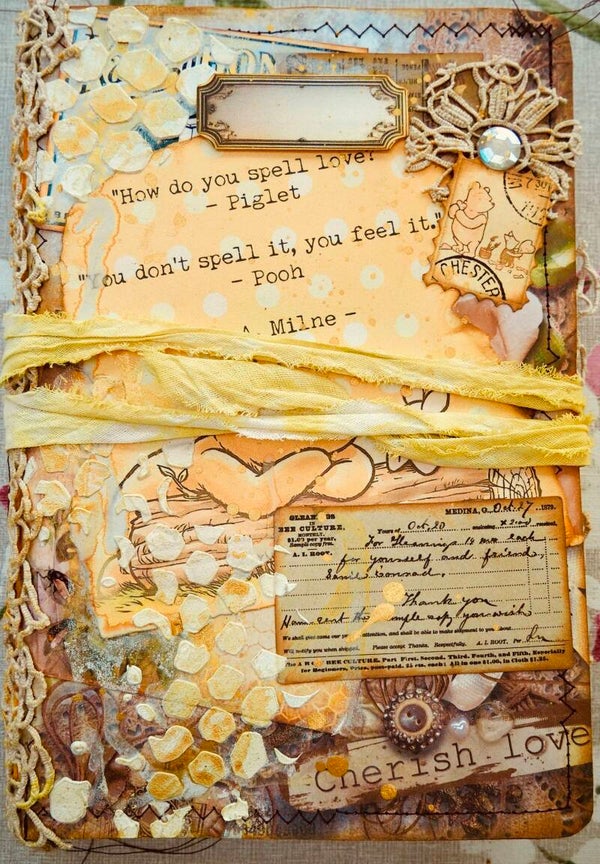 "How do you spell love?"
- Piglet
"You don't spell it, you feel it."
- Pooh
A. Milne -
CHESTER
GLEANINGS
IN
BEE CULTURE,
MONTHLY.
$1.00 per year,
Sample copy free.
A. I. ROOT.
MEDINA, O., Oct. 27 1879.
Yours of Oct. 20 received.
For Gleanings 1 each
for yourself and friend,
Conrad.
Thank you
Have sent the sample copy you wish
We shall give name our attention, and shall be able to make shipment to you about
Will notify you when shipped. Please accept Thanks. Respectfully, A. I. ROOT. Per
BEE CULTURE, Part First, Second, Third, Fourth, and Fifth, Especially
for Beginners, Price, post-paid, 25 cts. each; All in one $1.00, in Cloth $1.25.
Cherish love